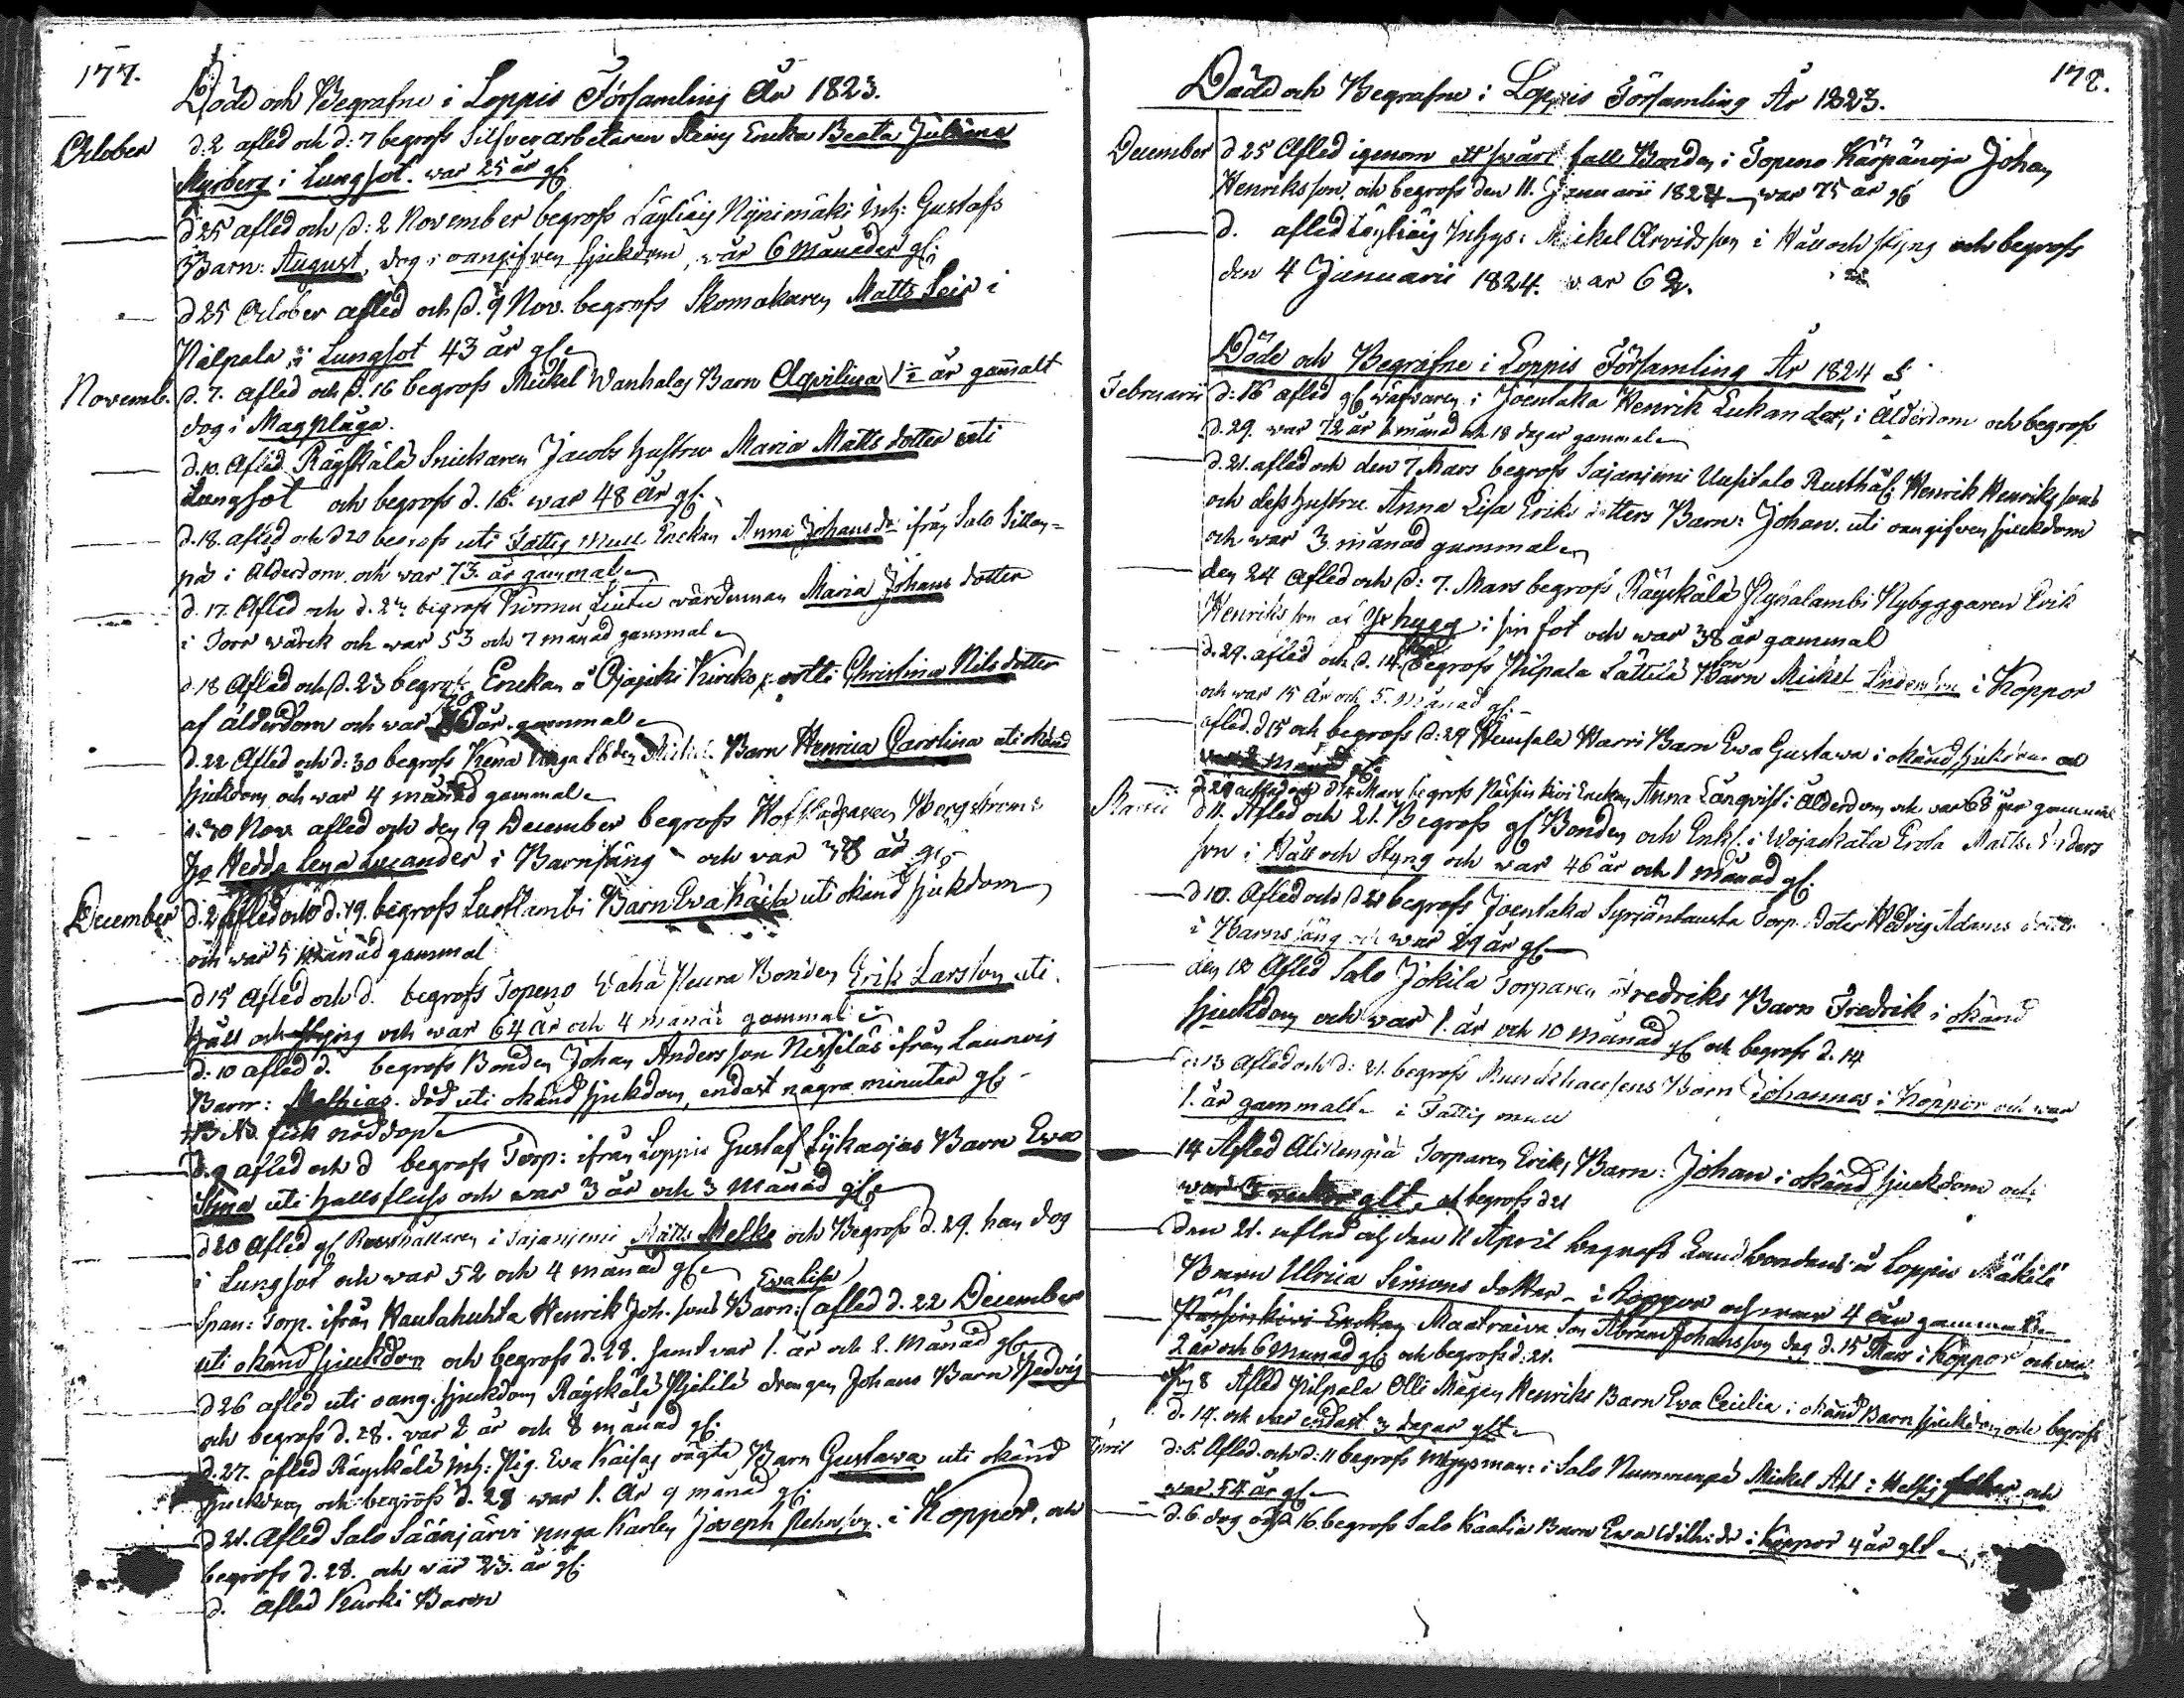 177.
Döde och Begrafne i Loppis Församling År 1823.
October d. 2 afled och d: 7 begrofs Silfverarbetaren Enka Beata Juliana
Nyberg i Lungsot. war 25 år gl.
d 25 afled och d: 2 November begrofs Läyliäis Nynimäki Inh: Gustafs
Barn: August, dog i oangifven sjukdom, war 6 Måneder gl.
d 25 October afled och d. 9 Nov. begrofs Skomakaren Matts Leir i
Pilpala i Lungsot 43 år gl.
Novemb. d. 7. afled och d. 16 begrofs Mickel Wanhalas Barn Aqvilina 1½ år gammalt
dog i Magplåga.
d. 10. Afled Räyskälä Snickaren Jacobs hustru Maria Matts dotter uti
Lungsot och begrofs d. 16. war 48 år gl.
d. 18. afled och d 20 begrofs uti Fattig mull Enckan Anna Johansdr ifrån Salo Sillan-
pä i Ålderdom och war 73. år gammal
d. 17. Afled och d. begrofs wärdinnan Maria Johans dotter
i Torr wärck och war 53 och 7 månad gammal
d. 18 Afled och d. 23 begrofs Enckan å Ojajoki Christina Nils dotter
af ålderdom och war 70 år gammal
d. 22 Afled och d: 30 begrofs Barn Henrica Carolina uti okänd
sjukdom och war 4 månad gammal
d. 30 Nov. afled och den 19 December begrofs Bergströms
Hedda Lena Lucander i Barnsäng och var 38 år gl.
December d. 2 Afled och d. 19. begrofs Luutlambi Barn Ewa Kaisa uti okänd sjukdom
och war 5 månad gammal
d 15 Afled och d. begrofs Topeno Waha Heura Bonden Erik Larsson uti
håll och styng och war 64 år och 4 månad gammal
d: 10 afled d. begrofs Bonden Johan Andersson Nissiläs ifrån Launois
Barn: Mathias. död uti okänd sjukdom, endast några minuter gl.
NB fick nöddop
d. 9 afled och d begrofs Torp: ifrån Loppis Gustaf Lykaojas Barn Ewa
Stina uti halsfluss och war 3 år och 3 månad gl.
d 20 Afled gl Rusthållaren i Sajaniemi Matts Melke och Begrofs d. 29. han dog
i Lungsot och war 52 och 4 månad gl
Ewa Lisa
Span: Torp. ifrån Hautahuhta Henrik Joh. sons Barn: afled d. 22 December
uti okänd sjuckdom och begrofs d. 28. samt var 1. år och 2. Månad gl
d 26 afled uti oang. sjuckdom Räyskälä Hjelilä drengen Johans Barn Hedvig
och begrofs d. 28. var 2 år och 8 månad gl.
d. 27. afled Räyskälä Inh: Pig. Eva Kaisas oägta Barn Gustawa uti okänd
sjuckdom och begrofs d. 28 war 1. år 9 månad gl.
d 21. Afled Salo Säänjärvi unga Karlen Joseph i Koppor, och
begrofs d. 28. och war 23. år gl.
d. Afled Kurki Barn
178.
Döde och Begrafne i Loppis Församling År 1823.
December d 25 Afled igenom ett swårt fall Bonden i Topeno Kärpänoja Johan
Henriksson, och begrofs den 11. Januarii 1824 war 75 år gl
d. afled Läyliäis Inhys: Mickel Arvidsson i Håll och styng och begrofs
den 4 Januarii 1824. war 62.
Döde och Begrafne i Loppis Församling År 1824
Februarii d: 16 afled gl wäfwaren i Joentaka Henrik Lukander, i Ålderdom och begrofs
d. 29. war 72 år 1 månad och 18 dagar gammal
d. 21. afled och den 7 Mars begrofs Sajaniemi Uusitalo Rusthål: Henrik Henrikssons
och dess hustru Anna Lisa Eriks dotters Barn: Johan. uti oangifven sjuckdom
och war 3. månad gammal
den 24 Afled och d: 7. Mars begrofs Räyskälä Hynälambi Nybyggaren Erik
Henriksson af Yxhugg i sin fot och war 38 år gammal
d. 29. afled och d. 14. begrofs Pilpala Lättilä Barn Mickel Andersson i Koppor
och war 15 år och 5. Månad gl.
afled. d 15 och begrofs d: 29 Hunsala Harri Barn Ewa Gustawa i okänd sjukdom
d 29 afled och d 14 Mars begrofs Räfsinkivi Enckan Anna Långvist i Ålderdom och var 68 år gammal
Martii d 11. Afled och 21. Begrofs gl Bonden och Enkl. i Wojackala Erola Matts Anders
son i Håll och Styng och war 46 år och 1 månad gl.
d 10. Afled och d 21 begrofs Joentaka Syrjäntausta Torp. doter Hedvig Adams dotter
i Barnsäng och war 29 år gl
den 12 Afled Salo Jokila Torparen Fredriks Barn Fredrik i okänd
sjuckdom och war 1. år och 10 månad gl och begrofs d. 14
d: 13 Afled och d: 21. begrofs Barn Johannes i Koppor och war
1. år gammalt i Fattig mull
14 Afled Alikengiä Torparen Eriks Barn: Johan i okänd sjuckdom och
war 3 wekor glt, och begrofs d 21
Den 21. afled och den 11 April begrofs Landbondens å Loppis Mäkilä
Barn Ulrica Simons dotter i Koppor och war 4 år gammal
Räfsinkivi Enckan Maatraiva Son Abram Johansson dog d. 15 Mars i Koppor och war
2 år och 6 Månad gl och begrofs d: 21.
8 Afled Pilpala Olli Mågen Henriks Barn Ewa Cecilia i okänd Barn sjuckdom och begrofs
d. 14. och var endast 3 dagar glt
April d: 5. Afled och d: 11 begrofs Inhysman: i Salo Nummenpä Mickel Ahl i Hetsig feber och
war 54 år gl
d. 6. dog och d 16. begrofs Salo Kaalia Barn Ewa Wilh: dr i Koppor 4 år glt